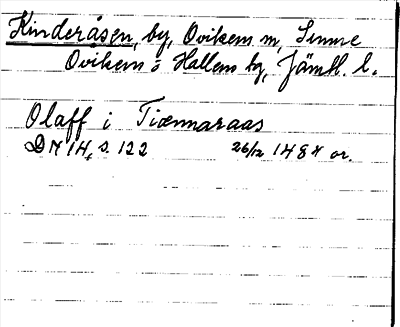 Kinderåsen, by, Ovikens sn,
Ovikens o Hallens tg, Jämtl. l.
Olaff i Tiænnaraas
DN 14, s. 122 26/12 148* or.